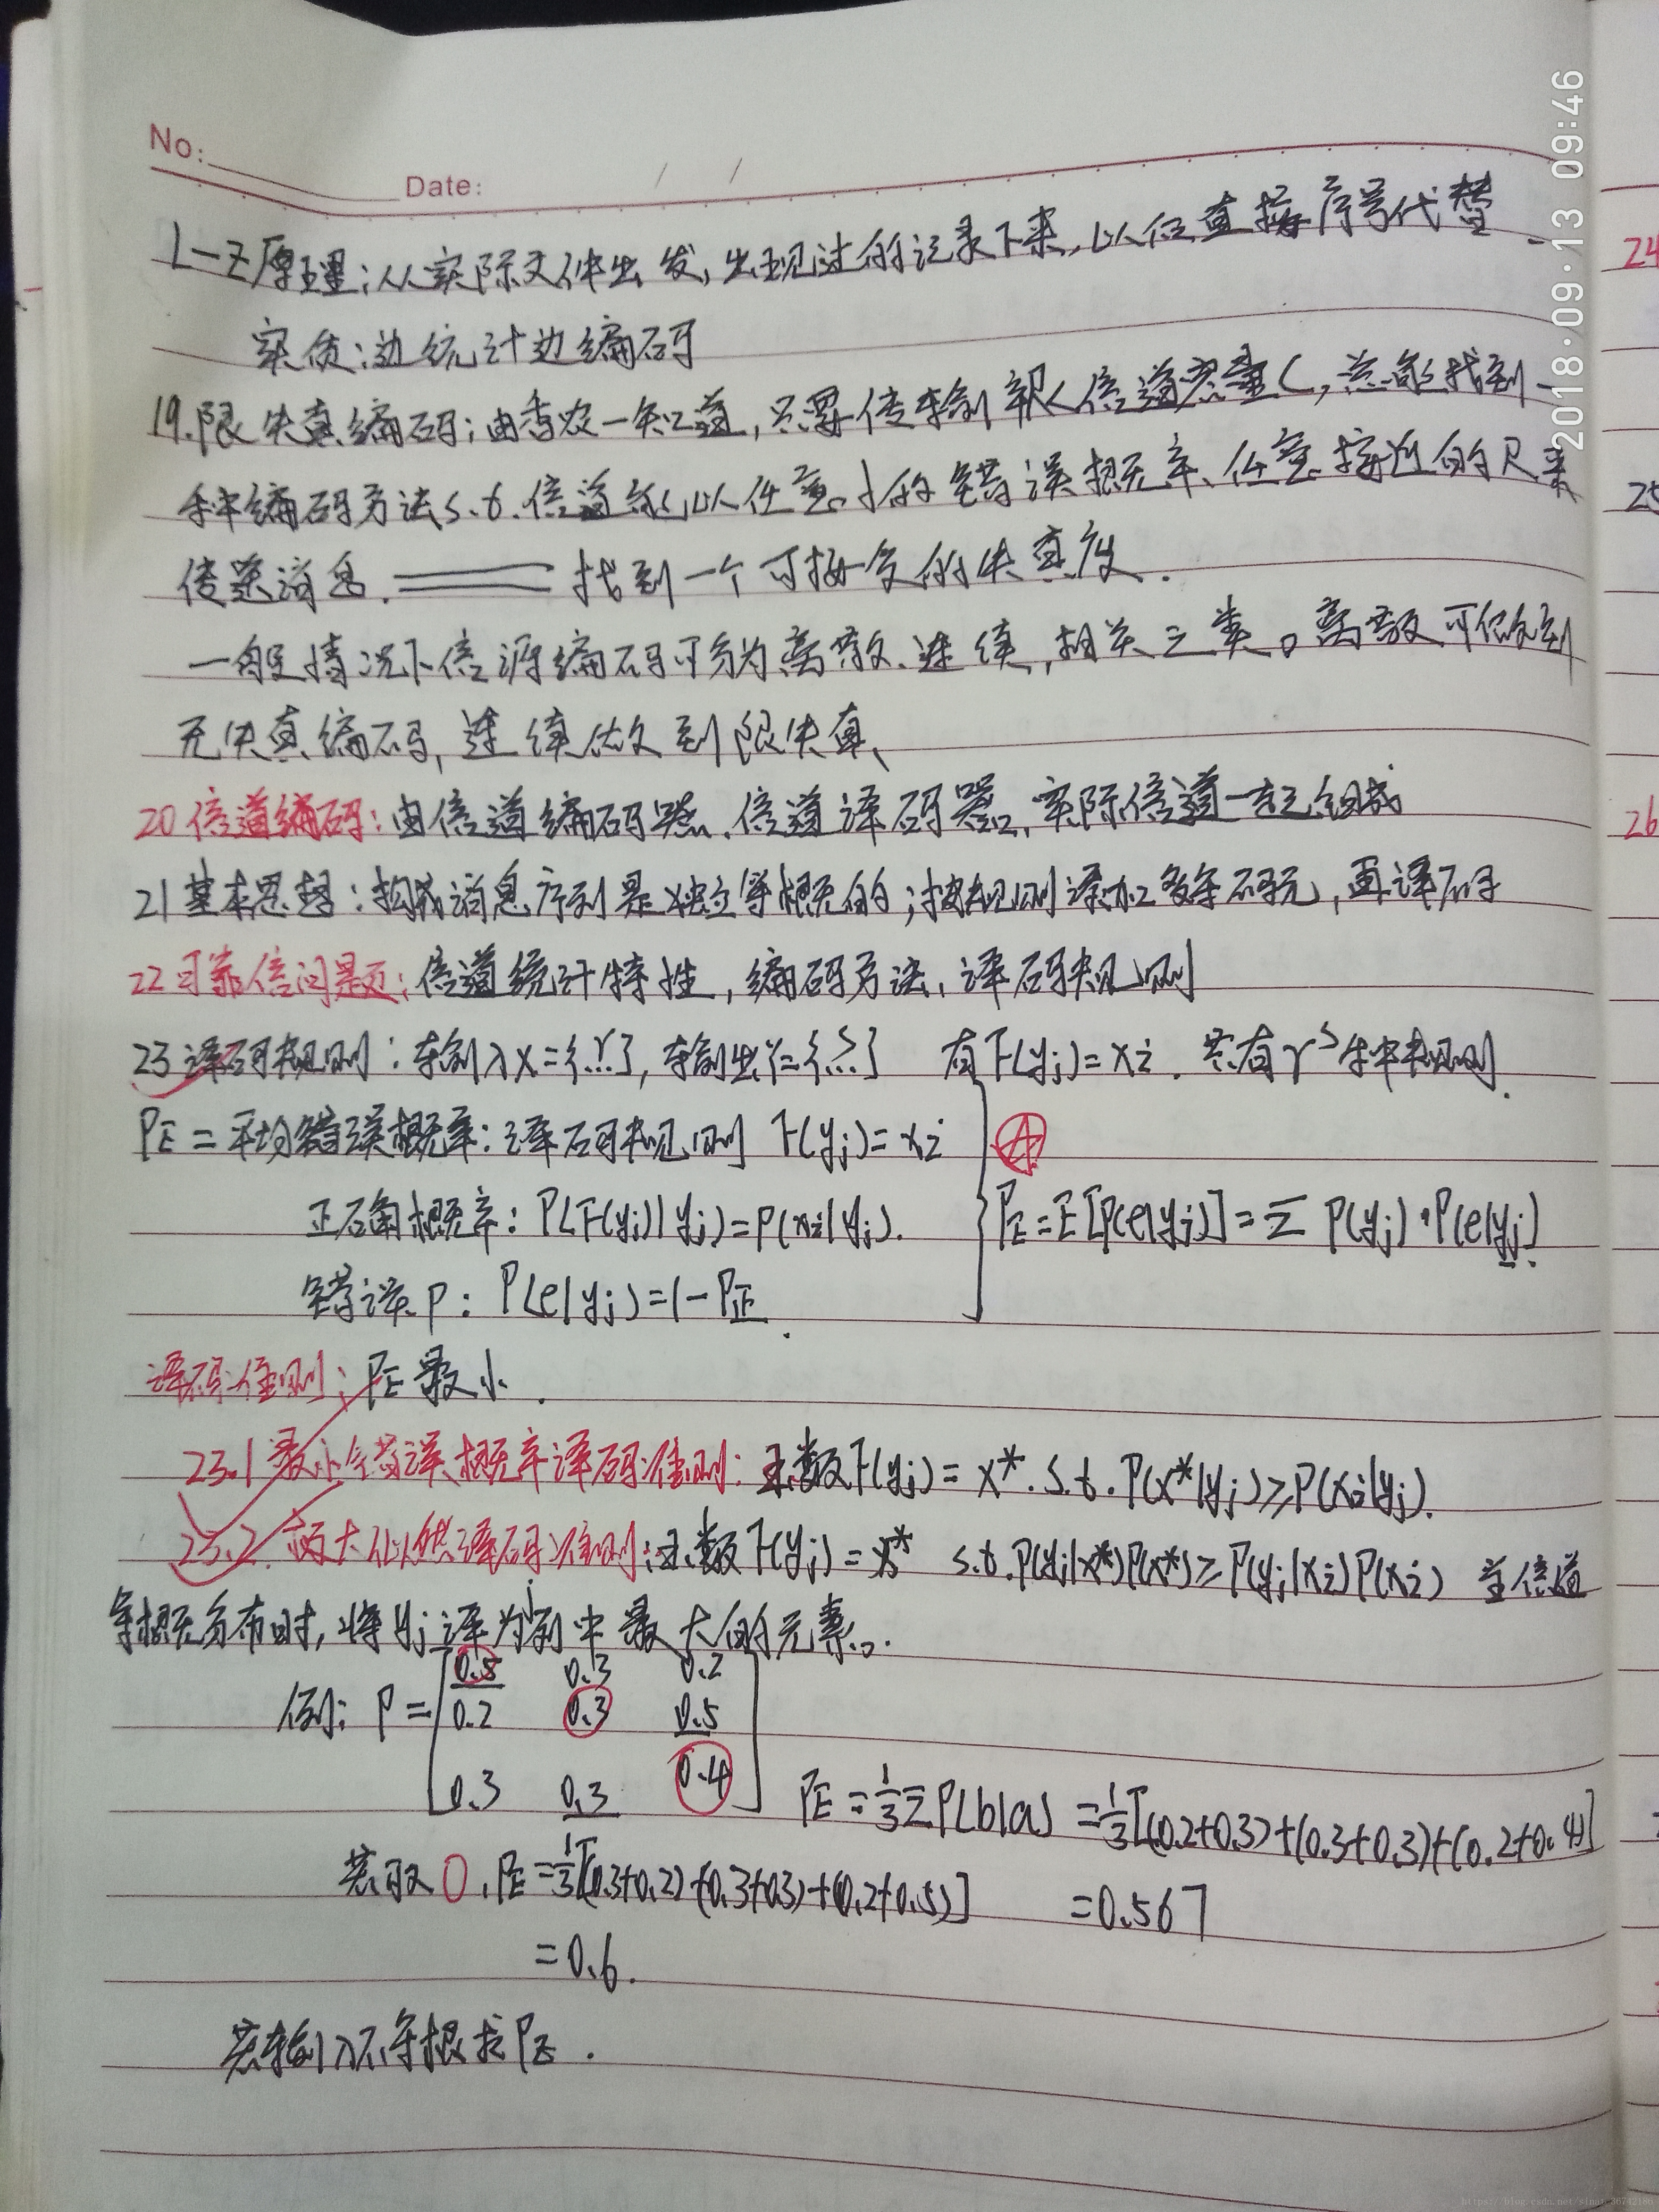 No:
Date: / /
2018·09·13 09:46
L-Z原理:从实际文件出发,出现过的记录下来,以位置接序号代替
实质:边统计边编码
19.限失真编码:由香农一知道,只要传输率R<信道容量C,总能找到一
种编码方法s.t.信道能以任意小的错误概率、任意接近的R来
传送消息.找到一个可接受的失真度.
一般情况下信源编码可分为离散、连续,相关三类。离散可做到
无失真编码,连续做到限失真、
20信道编码:由信道编码器、信道译码器、实际信道一起组成
21基本思想:构成消息序列是独立等概的;按规则添加多余码元,再译码
22可靠信问题:信道统计特性,编码方法,译码规则
23译码规则:输入X={..r.},输出Y={.s.} 有F(yj)=xi.共有r^s种规则.
PE=平均错误概率:译码规则 F(yj)=xi
正确概率:P(F(yj)|yj)=P(xi|yj).
PE=E[P(e|yj)]=Σ P(yj)·P(e|yj).
错误P:P(e|yj)=1-P正.
译码准则:PE最小.
23.1最小错误概率译码准则:函数F(yj)=x*.s.t.P(x*|yj)≥P(xi|yj).
23.2.极大似然译码准则:函数F(yj)=x* s.t.P(yj|x*)P(x*)≥P(yj|xi)P(xi) 当信道
等概分布时,将yj译为列中最大的元素.
例:P=[0.5 0.3 0.2
0.2 0.3 0.5
0.3 0.3 0.4]
PE=1/3ΣP(b|a)=1/3[(0.2+0.3)+(0.3+0.3)+(0.2+0.4)]
=0.567
若取O,PE=1/3[(0.3+0.2)+(0.3+0.3)+(0.2+0.5)]
=0.6.
若输入不等概求PE.
24
25
26